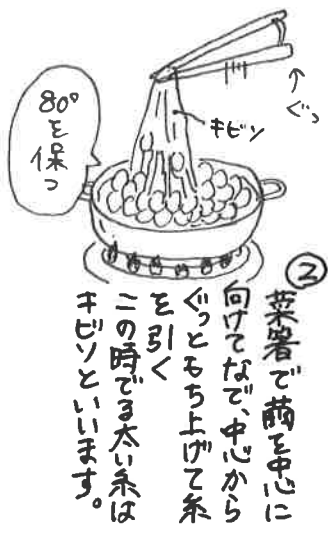 80°
を
保
つ
キビソ
ぐっ
②
菜箸で繭を中心に
向けてなで、中心から
ぐっともち上げて糸
を引く
この時でる太い糸は
キビソといいます。